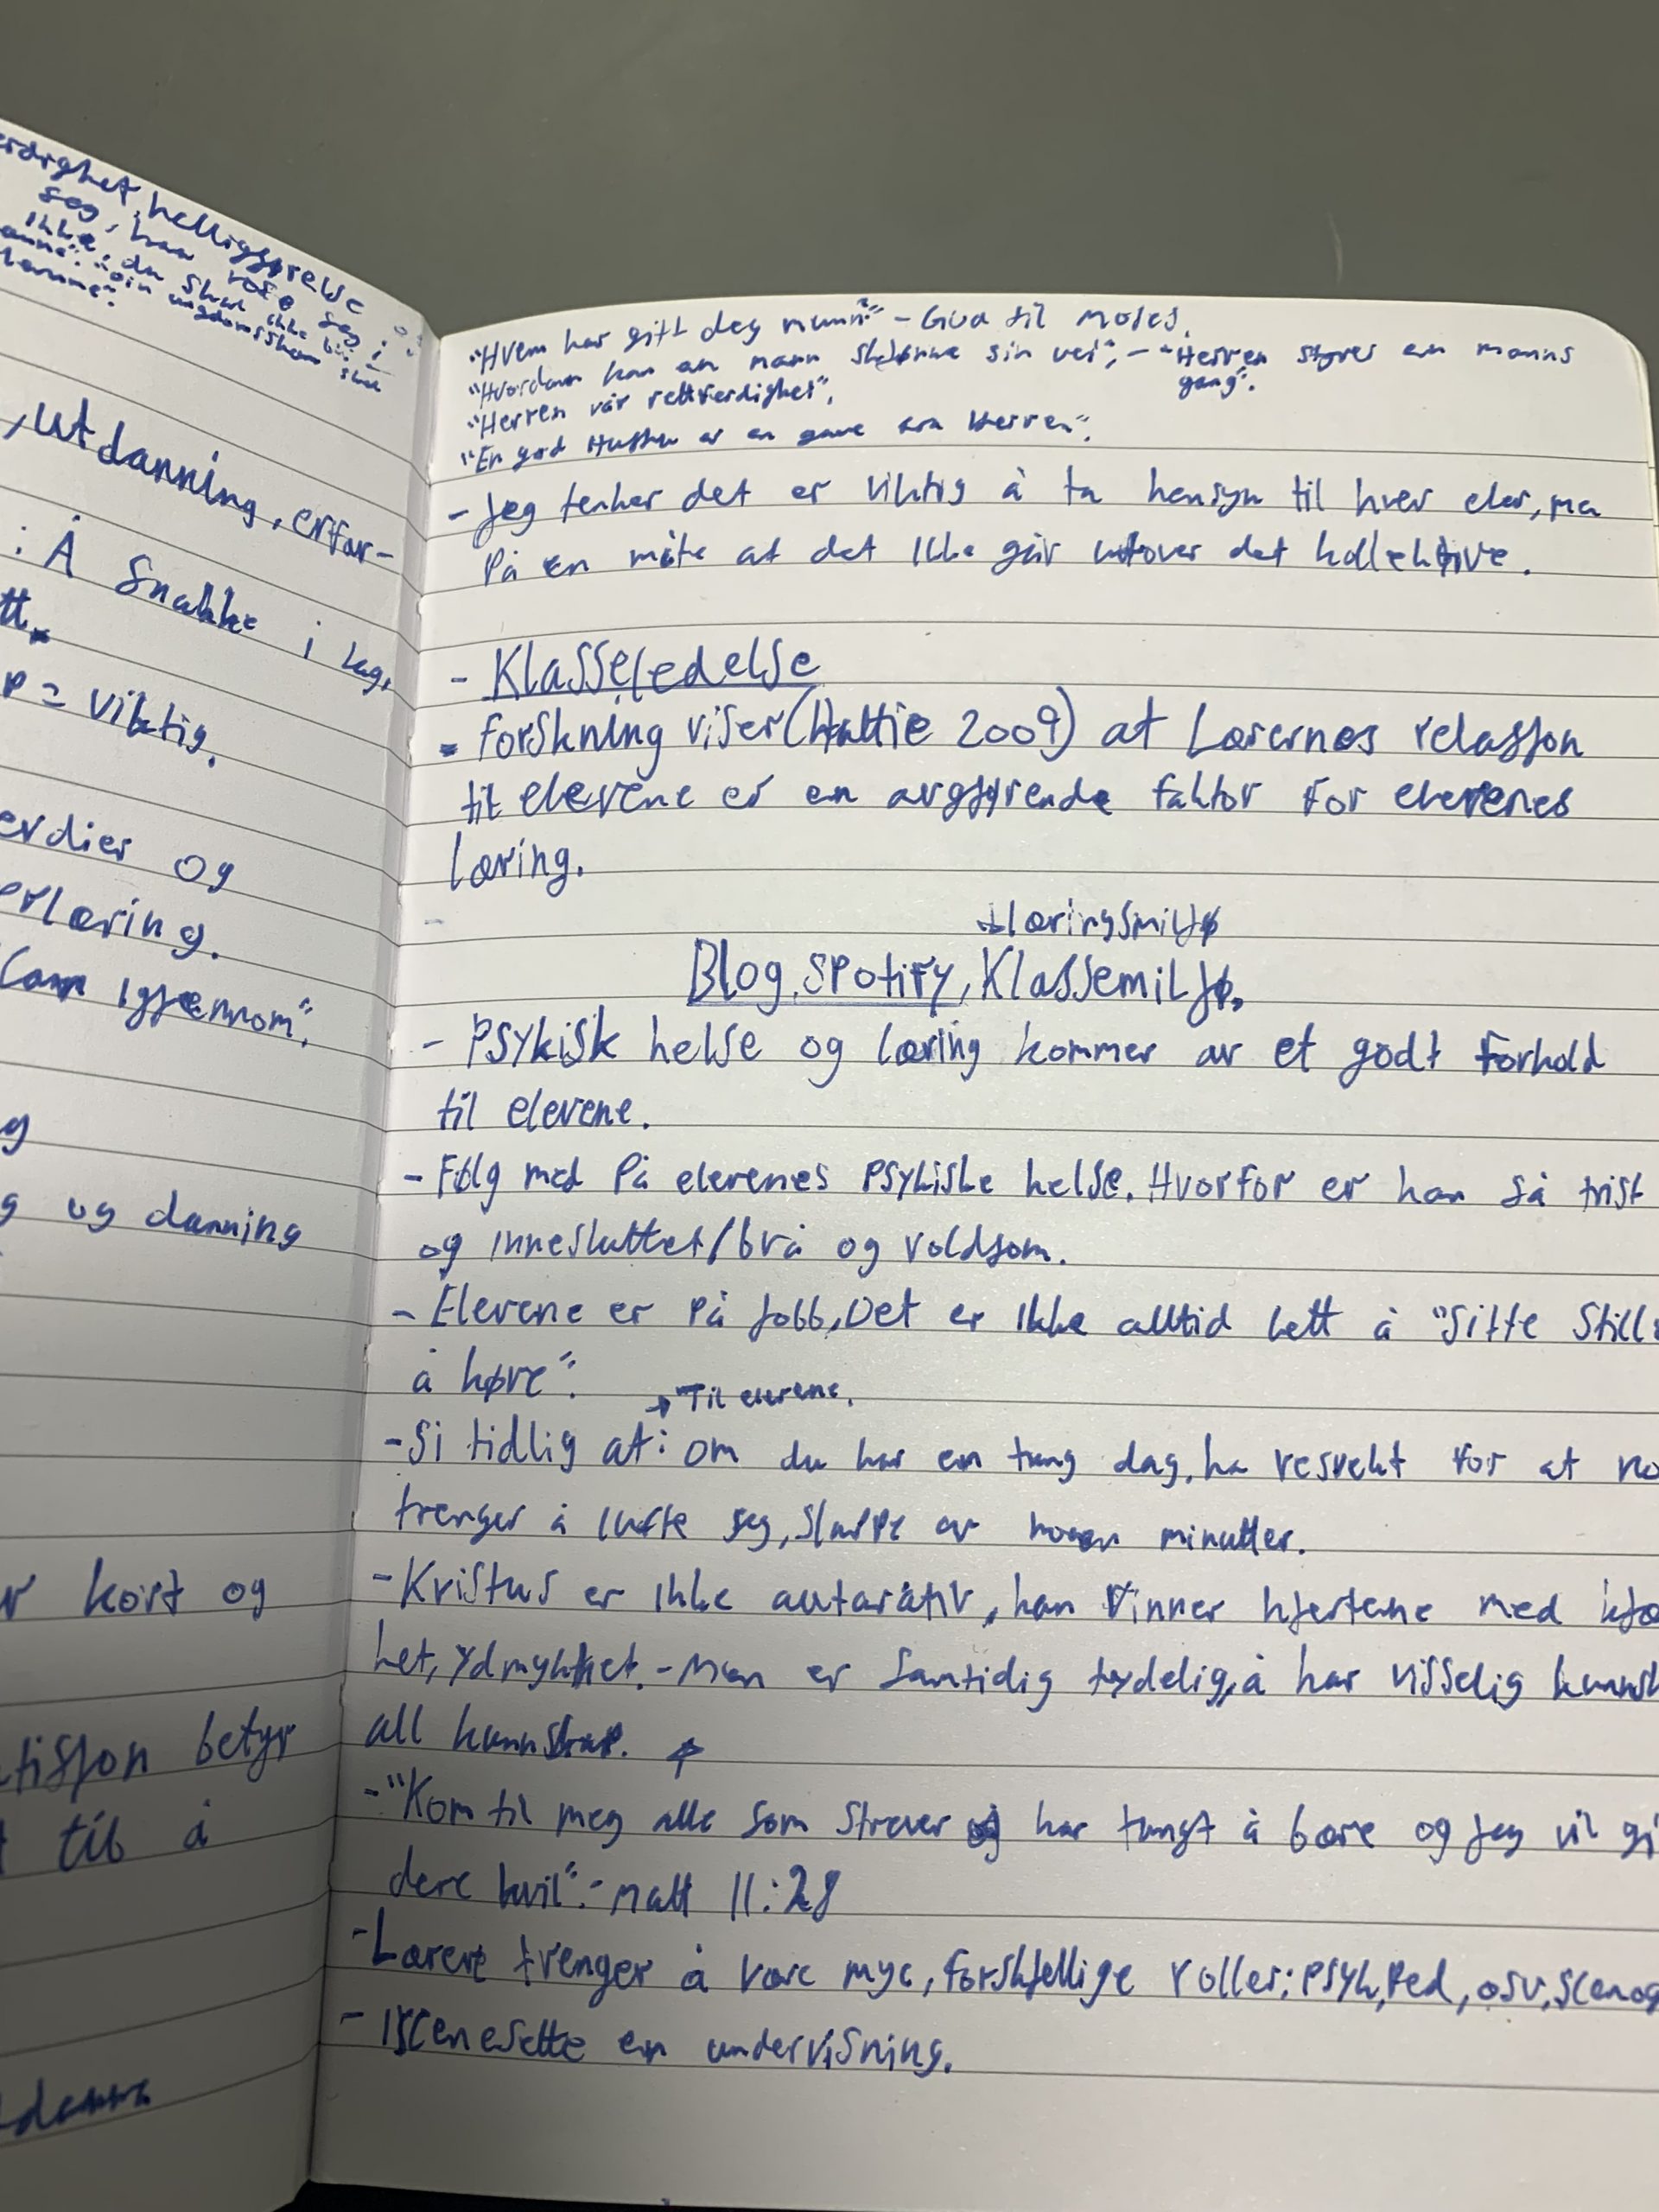 erdighet, helliggjørelse
seg, han rose seg i
ikke, du skal ikke bli
din ungdoms skam skal
, utdanning, erfar-
: Å snakke i lag,
tt.
P = viktig.
erdier og
erlæring.
igjennom".
g
g og danning
r kort og
tisjon betyr
t til å
"Hvem har gitt deg munn?" - Gud til Moses.
"Hvordan kan en mann skjønne sin vei", - "Herren styrer en manns
gang".
"Herren vår rettferdighet".
"En god Hustru er en gave fra Herren".
- Jeg tenker det er viktig å ta hensyn til hver elev, men
På en måte at det ikke går utover det kollektive.
- Klasseledelse
- forskning viser (Hattie 2009) at Lærernes relasjon
til elevene er en avgjørende faktor for elevenes
læring.
-
+læringsmiljø
Blog, spotify, Klassemiljø.
- Psykisk helse og læring kommer av et godt forhold
til elevene.
- Følg med På elevenes Psykiske helse. Hvorfor er han så trist
og innesluttet/brå og voldsom.
- Elevene er På jobb, Det er ikke alltid lett å "sitte stille
å høre".
→ Til elevene.
- Si tidlig at: om du har en tung dag, ha respekt for at no
trenger å lufte seg, slappe av noen minutter.
- Kristus er ikke autoråtiv, han Vinner hjertene med kjæ
het, ydmykhet. - Men er samtidig tydelig, å har visselig kunnsk
all kunnskap.
- "Kom til meg alle som strever har tungt å bære og jeg vil gi
dere hvil". - Matt 11:28
- Lærere trenger å være mye, forskjellige roller: Psyk, Ped, osv, scenog
- Iscenesette en undervisning.